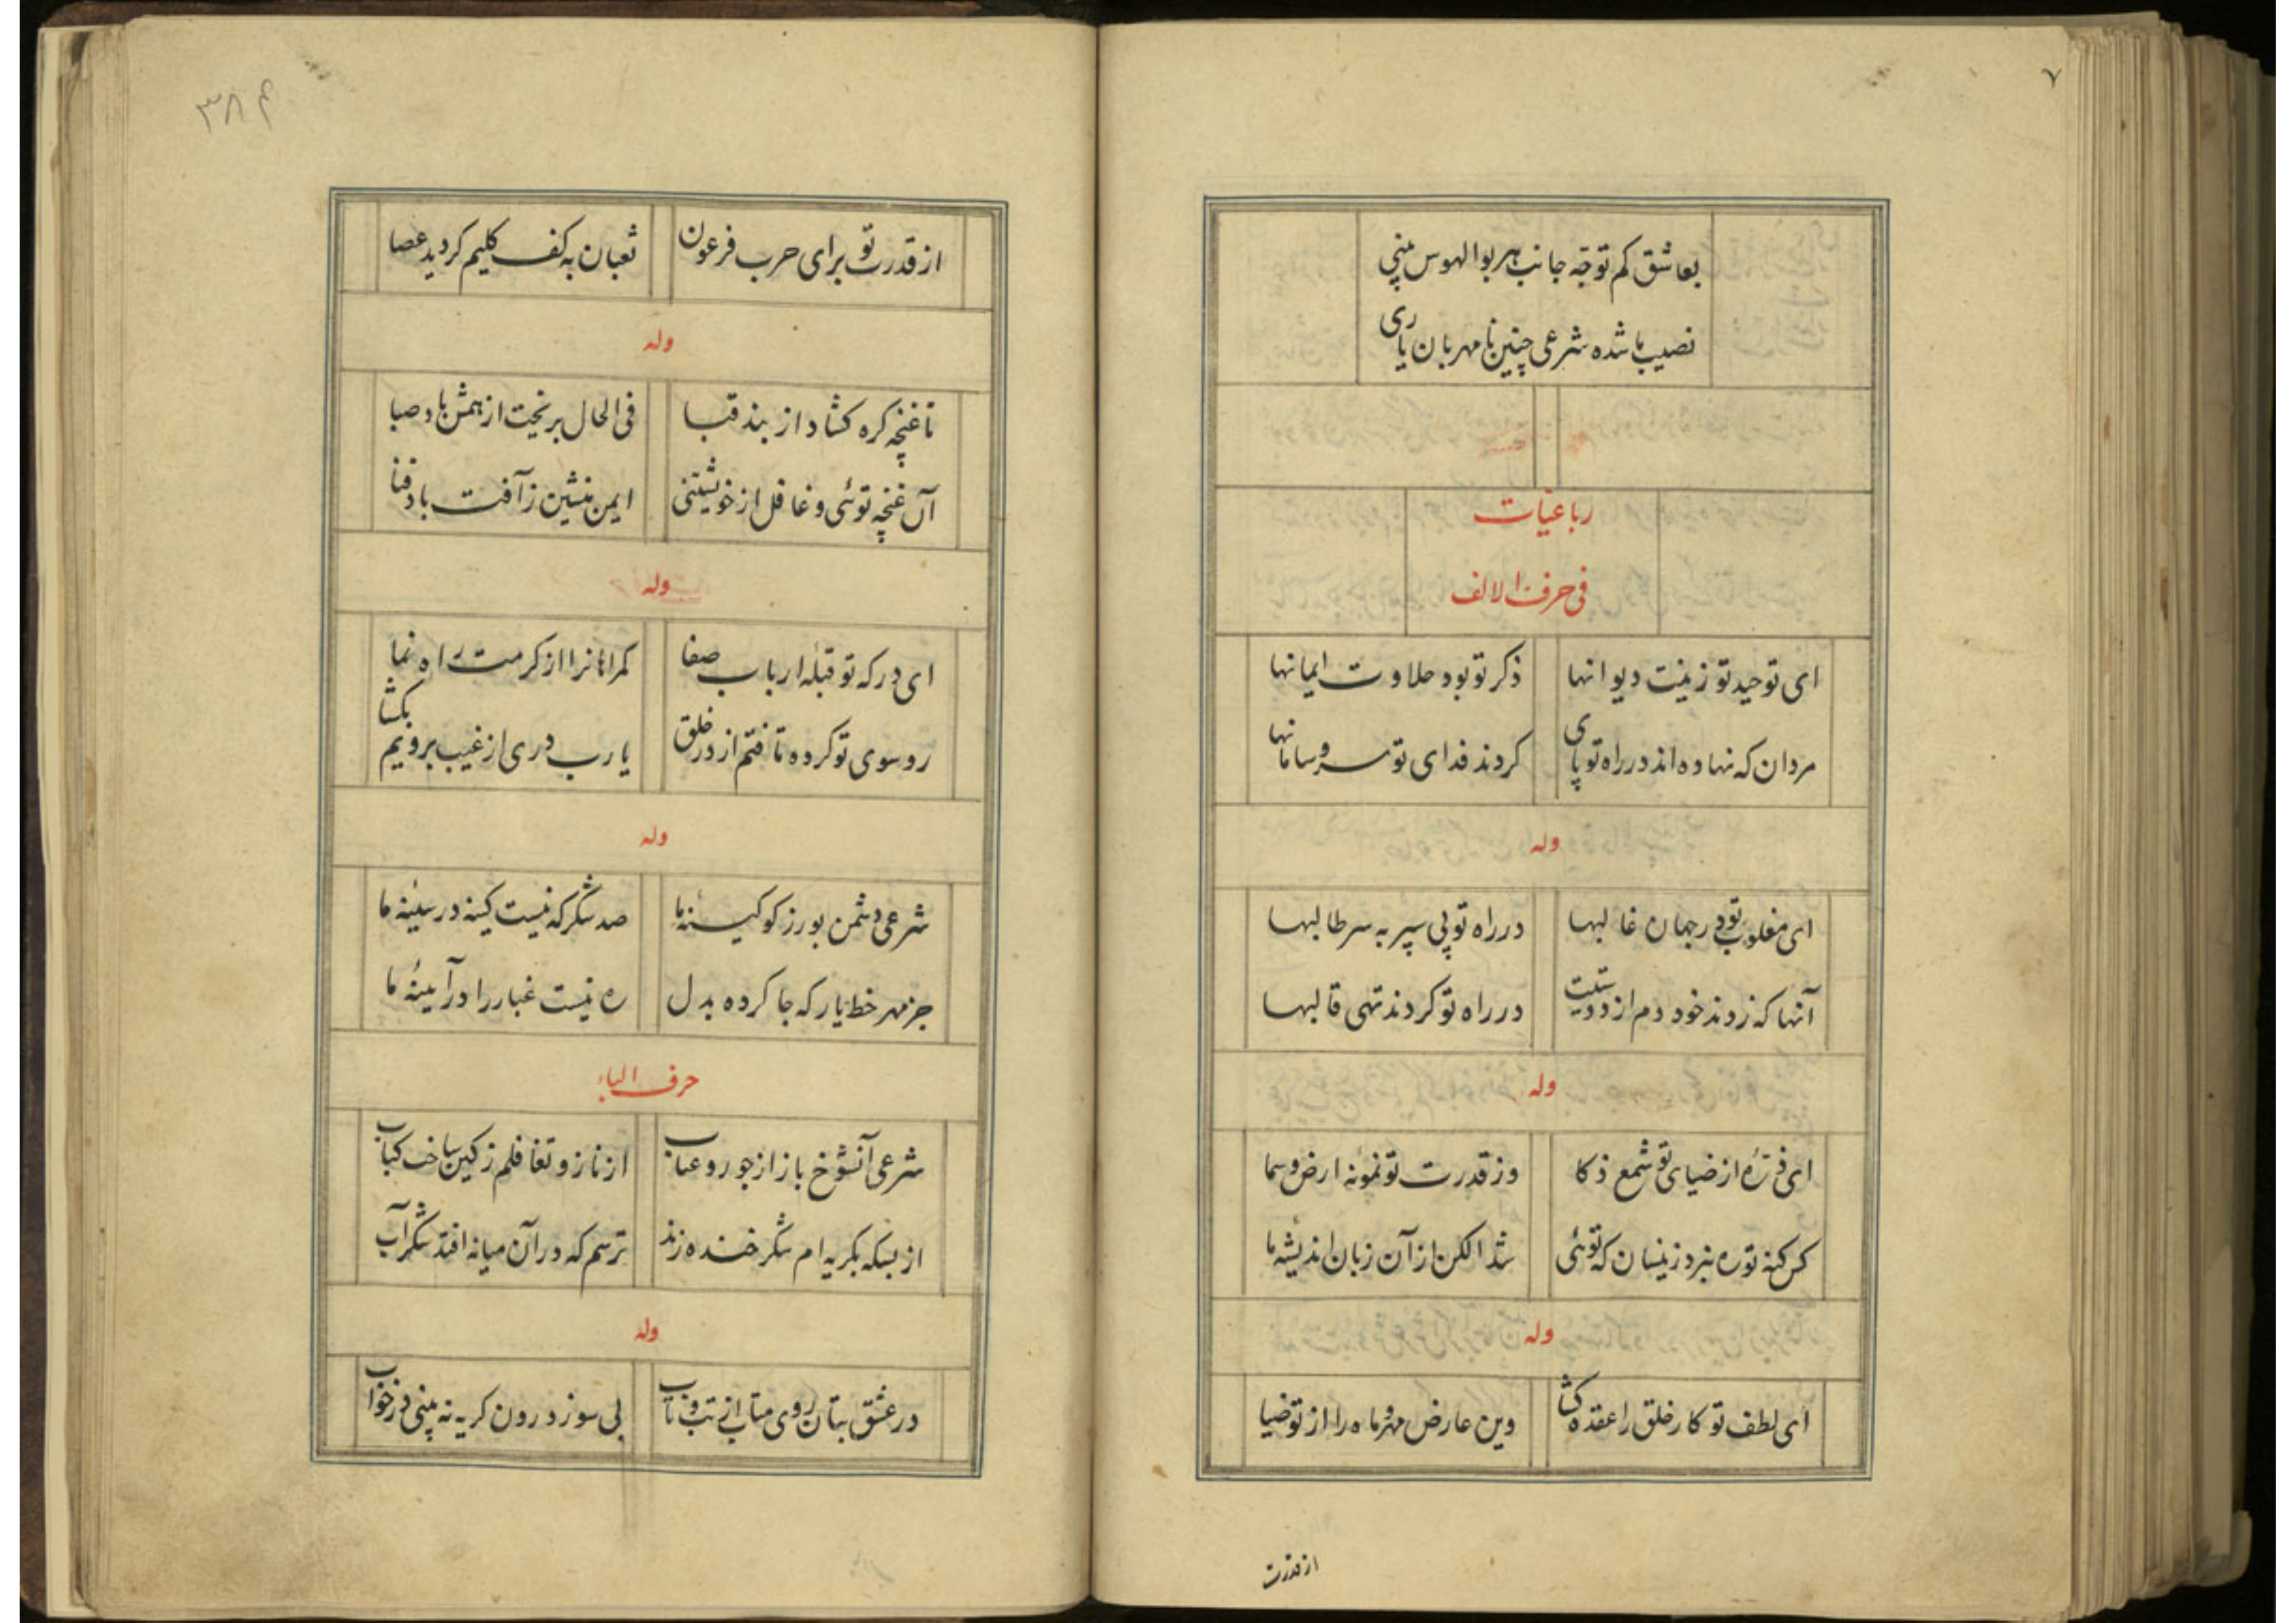 ۷
بعاشق کم توجّه جانب هر بوالهوس بینی
نصیب ما شده شرعی چنین نامهربان یاری
رباعیات
فی حرف الالف
ای توحید تو زینت دیوانها ذکر تو بود حلاوت ایمانها
مردان که نهاده اند در راه تو پای کردند فدای تو سر و سامانها
وله
ای مغلوب تو در جهان غالبها در راه تو پی سپر به سر طالبها
آنها که زدند خود دم از دوستیت در راه تو کردند تهی قالبها
وله
ای ذرّهٔ از ضیای تو شمع ذکا وز قدرت تو نمونهٔ ارض و سما
کس کنه تو ره نبرد زینسان که توئی شد الکن از آن زبان اندیشهٔ ما
وله
ای لطف تو کار خلق را عقده کشا وین عارض مهر و ماه را از تو ضیا
از قدرت
۳۸۴
از قدرت تو برای حرب فرعون ثعبان به کف کلیم کردید عصا
وله
تا غنچه کره کشاد از بند قبا فی الحال بریخت از همش باد صبا
آن غنچه توئی و غافل از خویشتنی ایمن منشین ز آفت باد فنا
وله
ای درکه تو قبلهٔ ارباب صفا کمراهانرا از کرمت راه نما
رو سوی تو کرده تافتم از در خلق یا رب دری از غیب برویم بکشا
وله
شرعی دشمن بورز کو کینهٔ ما صد شکر که نیست کینه در سینهٔ ما
جز مهر خط یار که جا کرده بدل ره نیست غبار را در آیینهٔ ما
حرف الباء
شرعی آنشوخ باز از جور و عتاب از ناز و تغافلم ز کین ساخت کباب
از بسکه بکریه ام شکر خنده زند ترسم که در آن میانه افتد شکرآب
وله
در عشق بتان روی متاب از تب و تاب بی سوز درون کریه نه بینی در خواب